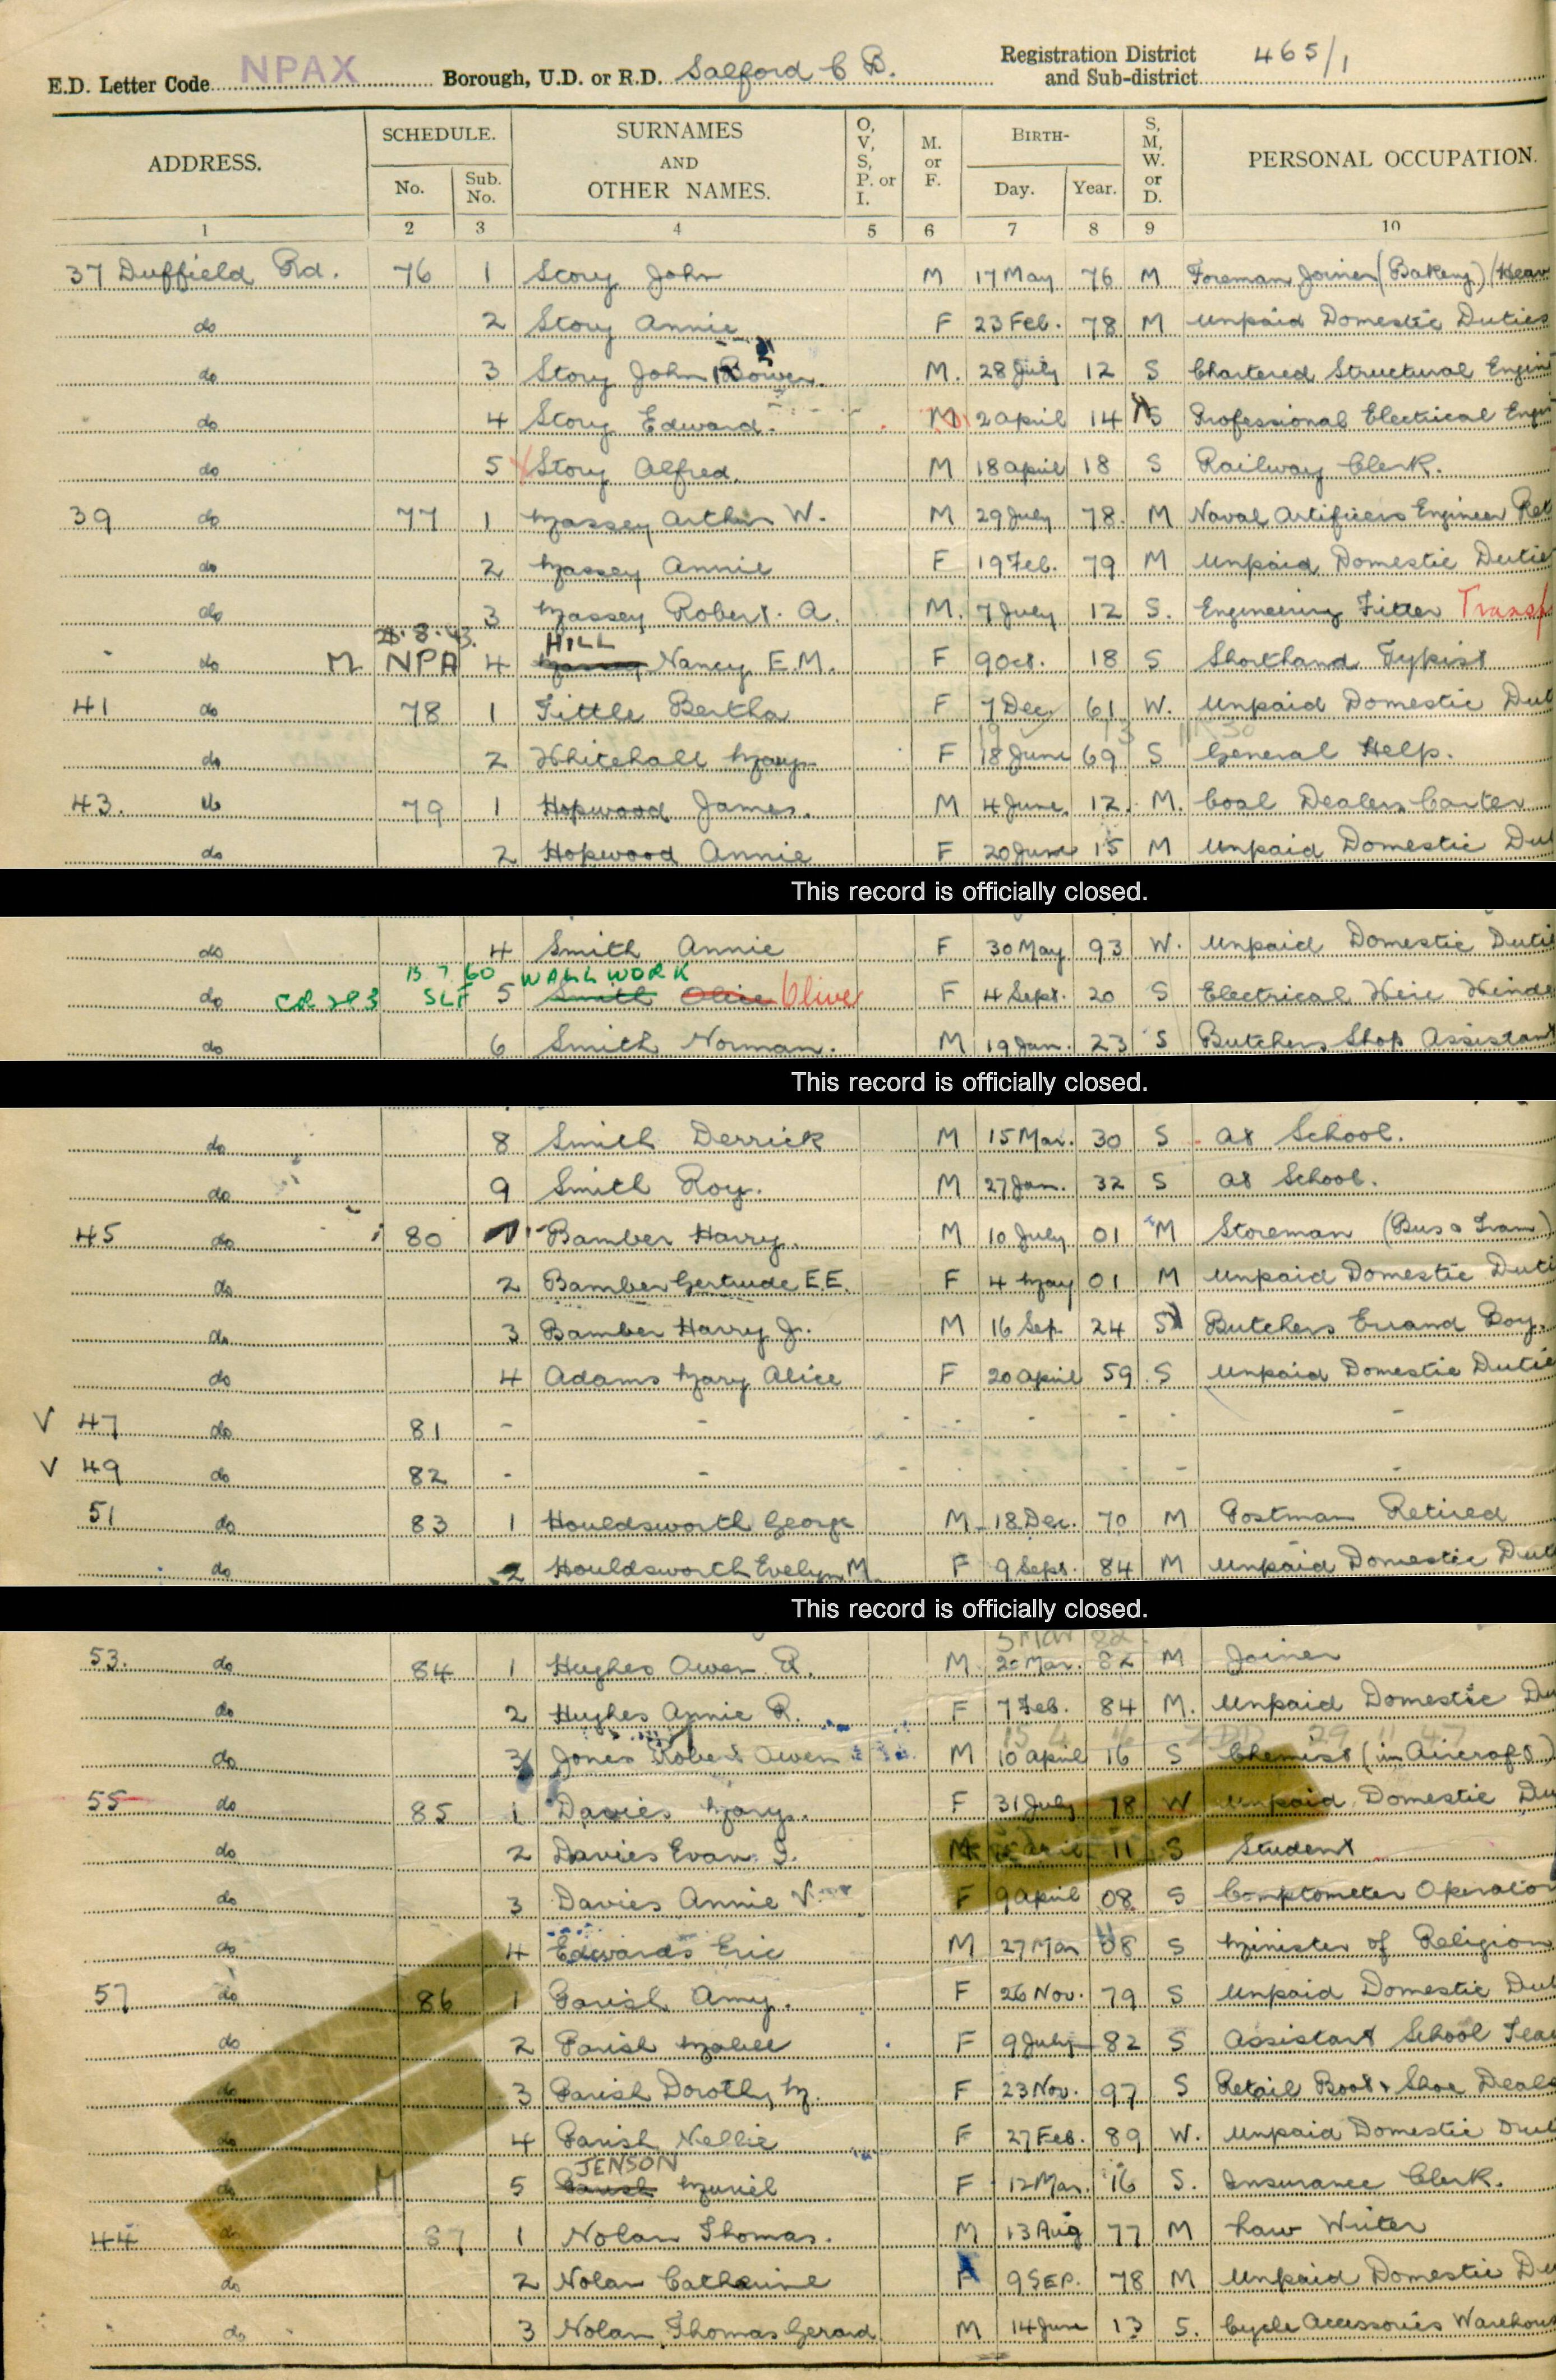 E.D. Letter Code NPAX Borough, U.D. or R.D. Salford C B. Registration District and Sub-district 465/1
ADDRESS. SCHEDULE. No. Sub. No. SURNAMES AND OTHER NAMES. O, V, S, P. or I. M. or F. BIRTH- Day. Year. S, M, W. or D. PERSONAL OCCUPATION.
1 2 3 4 5 6 7 8 9 10
37 Duffield Rd. 76 1 Story John M 17 May 76 M Foreman Joiner (Bakery) (Heav
do 2 Story Annie F 23 Feb. 78 M Unpaid Domestic Duties
do 3 Story John Bower. M. 28 July 12 S Chartered Structural Engin
do 4 Story Edward. M 2 April 14 S Professional Electrical Engi
do 5 Story Alfred. M 18 April 18 S Railway Clerk.
39 do 77 1 Massey Arthur W. M 29 July 78. M Naval Artificers Engineer Ret
do 2 Massey Annie F 19 Feb. 79 M Unpaid Domestic Dutie
do 3 Massey Robert. A. M. 7 July 12 S. Engineering Fitter Transf
HILL
do M NPA 4 Massey Nancy E.M. F 9 Oct. 18 S Shorthand Typist
41 do 78 1 Tittle Bertha F 7 Dec. 61 W. Unpaid Domestic Dut
do 2 Whitehall Mary F 18 June 69 S General Help.
43. do 79 1 Hopwood James. M 4 June 12. M. Coal Dealers Carter
do 2 Hopwood Annie F 20 June 15 M Unpaid Domestic Dut
This record is officially closed.
do 4 Smith Annie F 30 May 93 W. Unpaid Domestic Duti
15 7 60 WALLWORK
do SLF 5 Smith Olive F 4 Sept. 20 S Electrical Wire Winde
do 6 Smith Norman. M 19 Jan. 23 S Butchers Shop Assistant
This record is officially closed.
do 8 Smith Derrick M 15 Mar. 30 S At School.
do 9 Smith Roy. M 27 Jan. 32 S At School.
45 do 80 1 Bamber Harry. M 10 July 01 M Storeman (Bus & Tram)
do 2 Bamber Gertrude E.E. F 4 May 01 M Unpaid Domestic Duti
do 3 Bamber Harry J. M 16 Sep 24 S Butchers Errand Boy.
do 4 Adams Mary Alice F 20 April 59 S Unpaid Domestic Dutie
V 47 do 81 - - - - - - -
V 49 do 82 - - - - - - -
51 do 83 1 Houldsworth George M 18 Dec. 70 M Postman Retired
do 2 Houldsworth Evelyn M. F 9 Sept. 84 M Unpaid Domestic Dut
This record is officially closed.
5 Mar 82
53. do 84 1 Hughes Owen R. M 20 Mar. 82 M Joiner
do 2 Hughes Annie R. F 7 Feb. 84 M. Unpaid Domestic Du
do 3 Jones Robert Owen M 10 April 16 S Chemist (in Aircraft)
55 do 85 1 Davies Mary. F 31 July 78 W Unpaid Domestic Du
do 2 Davies Evan M 11 S Student
do 3 Davies Annie V. F 9 April 08 S Comptometer Operator
do 4 Edwards Eric M 27 Mar 08 S Minister of Religion
57 do 86 1 Parish Amy. F 26 Nov. 79 S Unpaid Domestic Dut
do 2 Parish Mabel F 9 July 82 S Assistant School Teac
do 3 Parish Dorothy M. F 23 Nov. 97 S Retail Boot & Shoe Deale
do 4 Parish Nellie F 27 Feb. 89 W. Unpaid Domestic Dut
JENSON
do M 5 Parish Muriel F 12 Mar. 16 S. Insurance Clerk.
44 do 87 1 Nolan Thomas. M 13 Aug 77 M Law Writer
do 2 Nolan Catherine F 9 SEP. 78 M Unpaid Domestic Du
do 3 Nolan Thomas Gerard M 14 June 13 S. Cycle Accessories Warehous